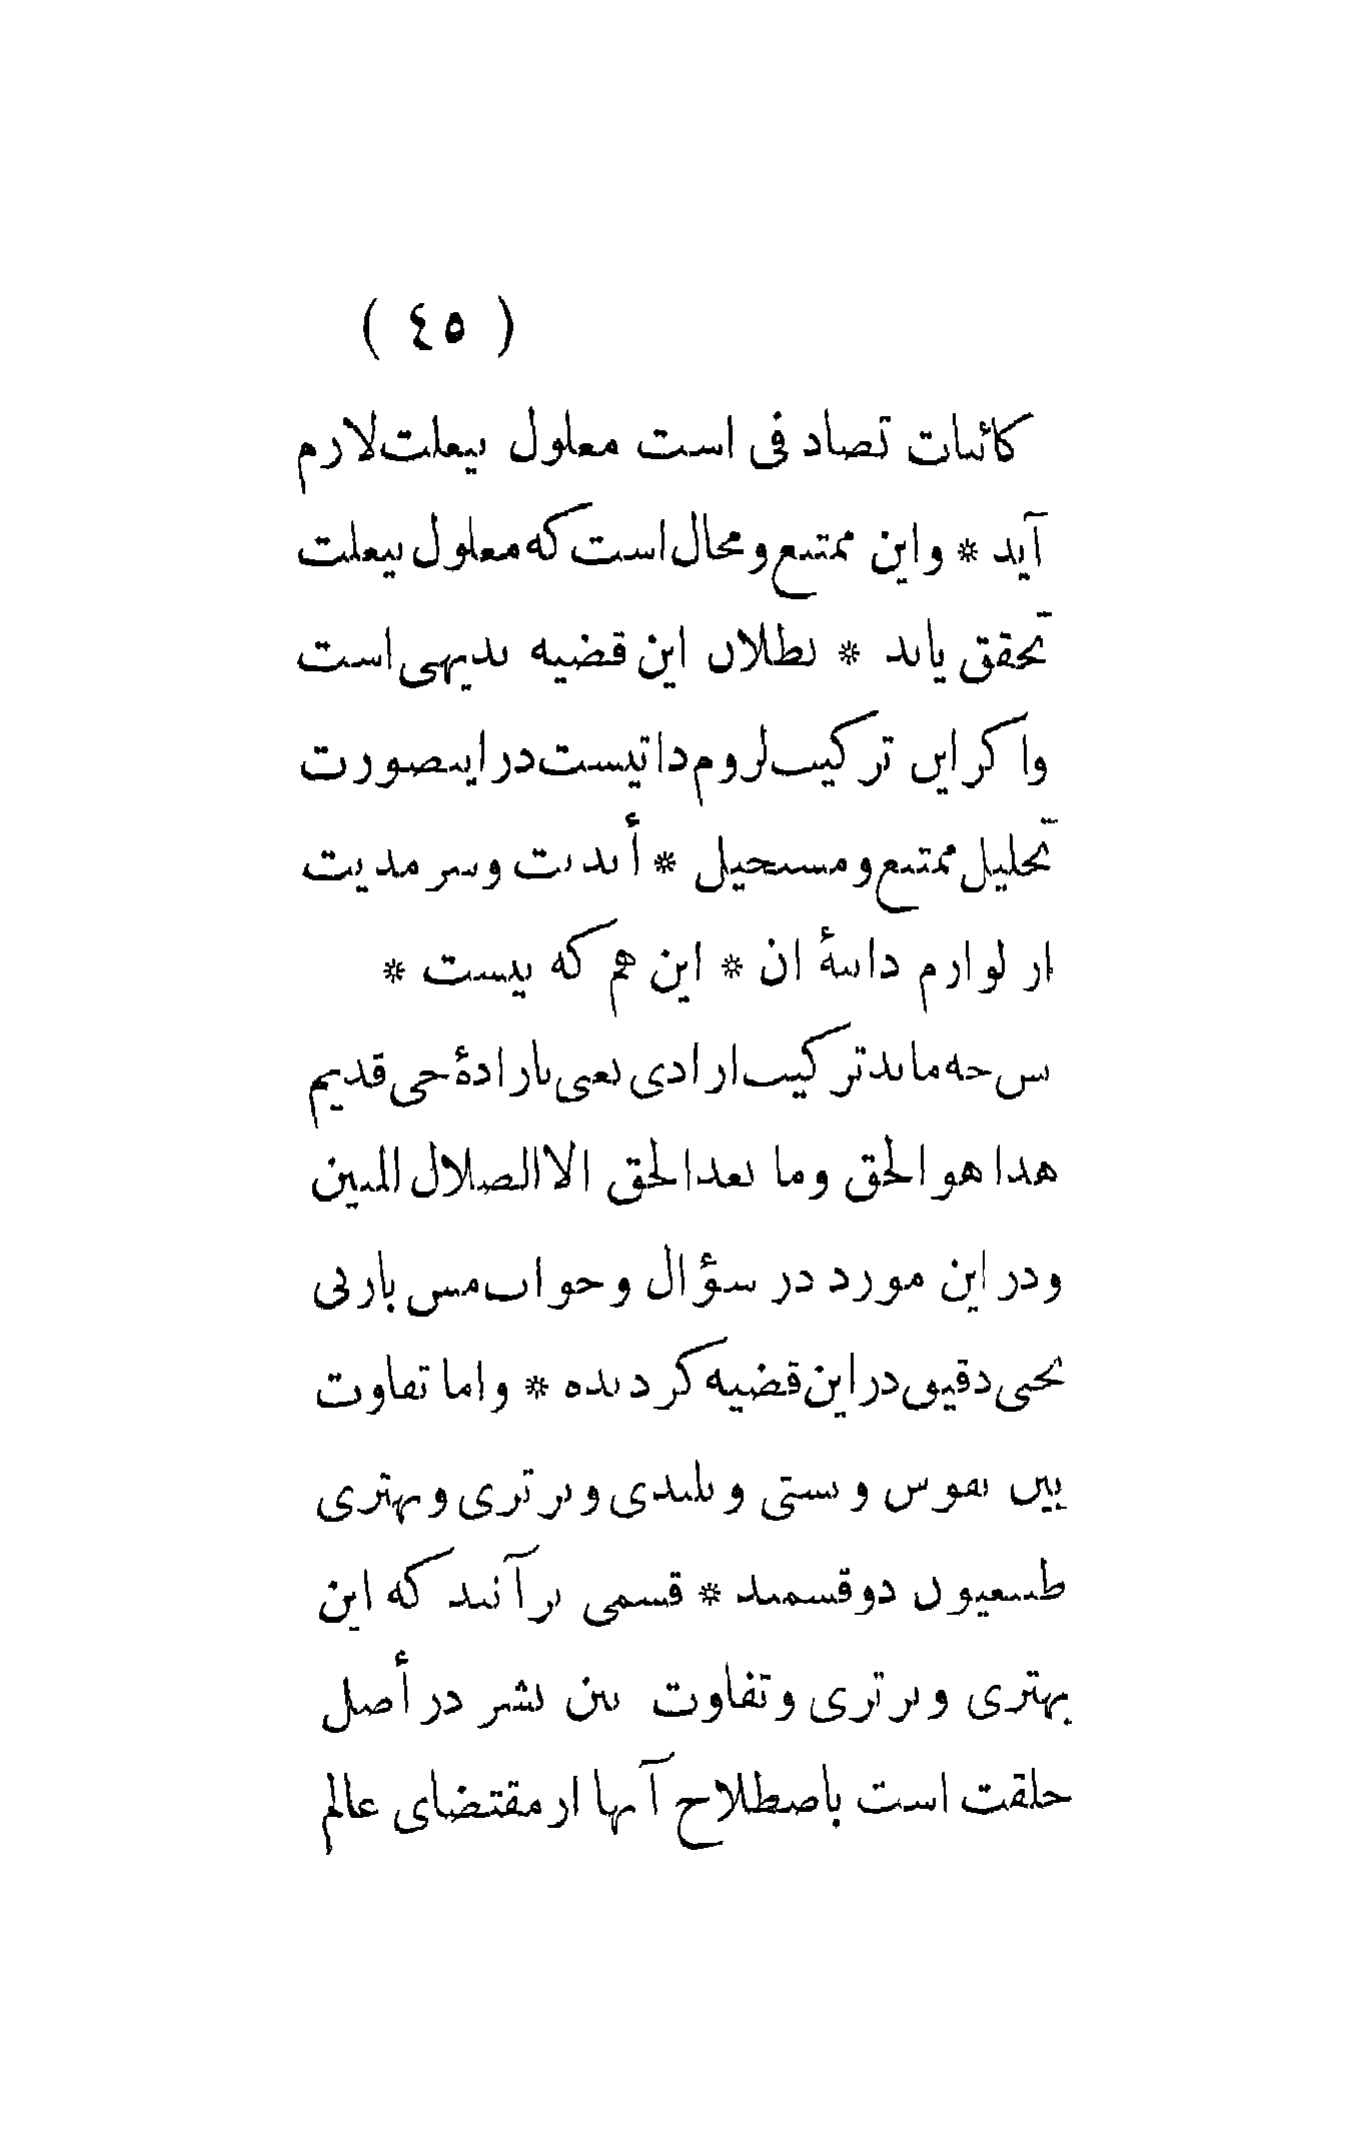 ( ٤٥ )
کائنات تصادفی است معلول بیعلت لازم
آید * و این ممتنع و محال است که معلول بیعلت
تحقق یابد * بطلان این قضیه بدیهی است
و اکر این ترکیب لزوم ذاتیست در اینصورت
تحلیل ممتنع و مستحیل * أبدیت و سرمدیت
از لوازم ذاتیهٔ ان * این هم که نیست *
پس چه ماند ترکیب ارادی یعنی بارادهٔ حی قدیم
هذا هو الحق وما بعد الحق الا الضلال المبین
و در این مورد در سؤال و جواب مس بارنی
بحثی دقیق در این قضیه کردیده * و اما تفاوت
بین نفوس و پستی و بلندی و برتری و بهتری
طبیعیون دو قسمند * قسمی بر آنند که این
بهتری و برتری و تفاوت بین بشر در أصل
خلقت است باصطلاح آنها از مقتضای عالم